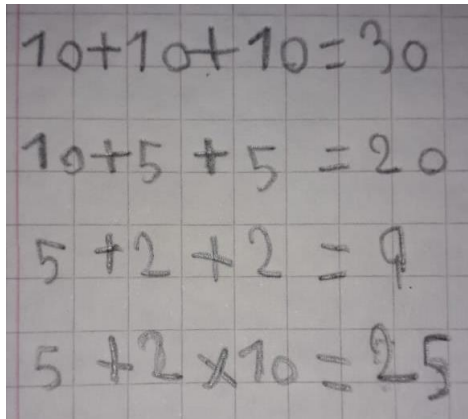 10+10+10=30
10+5+5=20
5+2+2=9
5+2×10=25